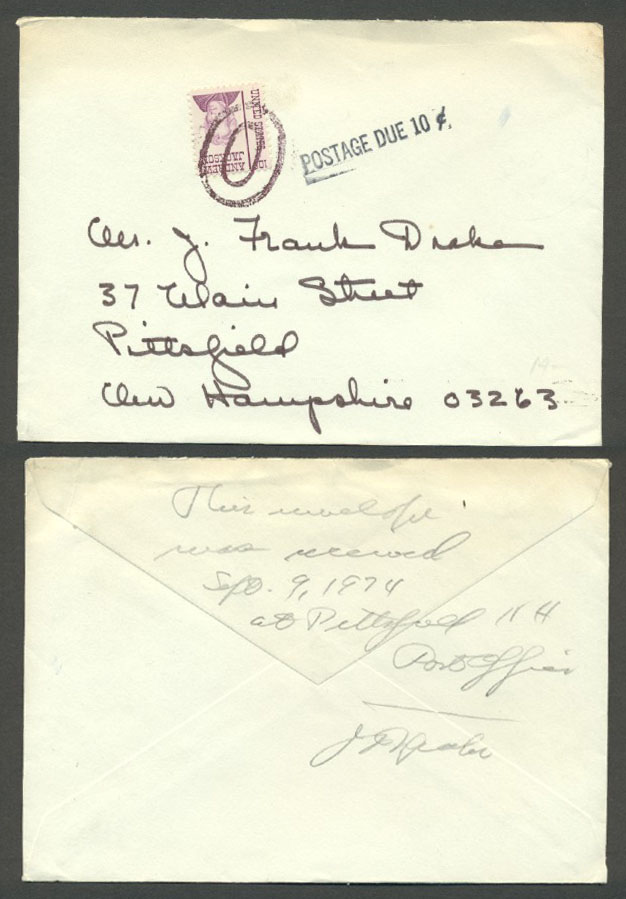 UNITED STATES
10¢ ANDREW
JACKSON
POSTAGE DUE 10 ¢.
Mr. J. Frank Drake
37 Main Street
Pittsfield
New Hampshire 03263
This envelope
was received
Sept. 9, 1974
at Pittsfield N H
Post Office
J F Drake